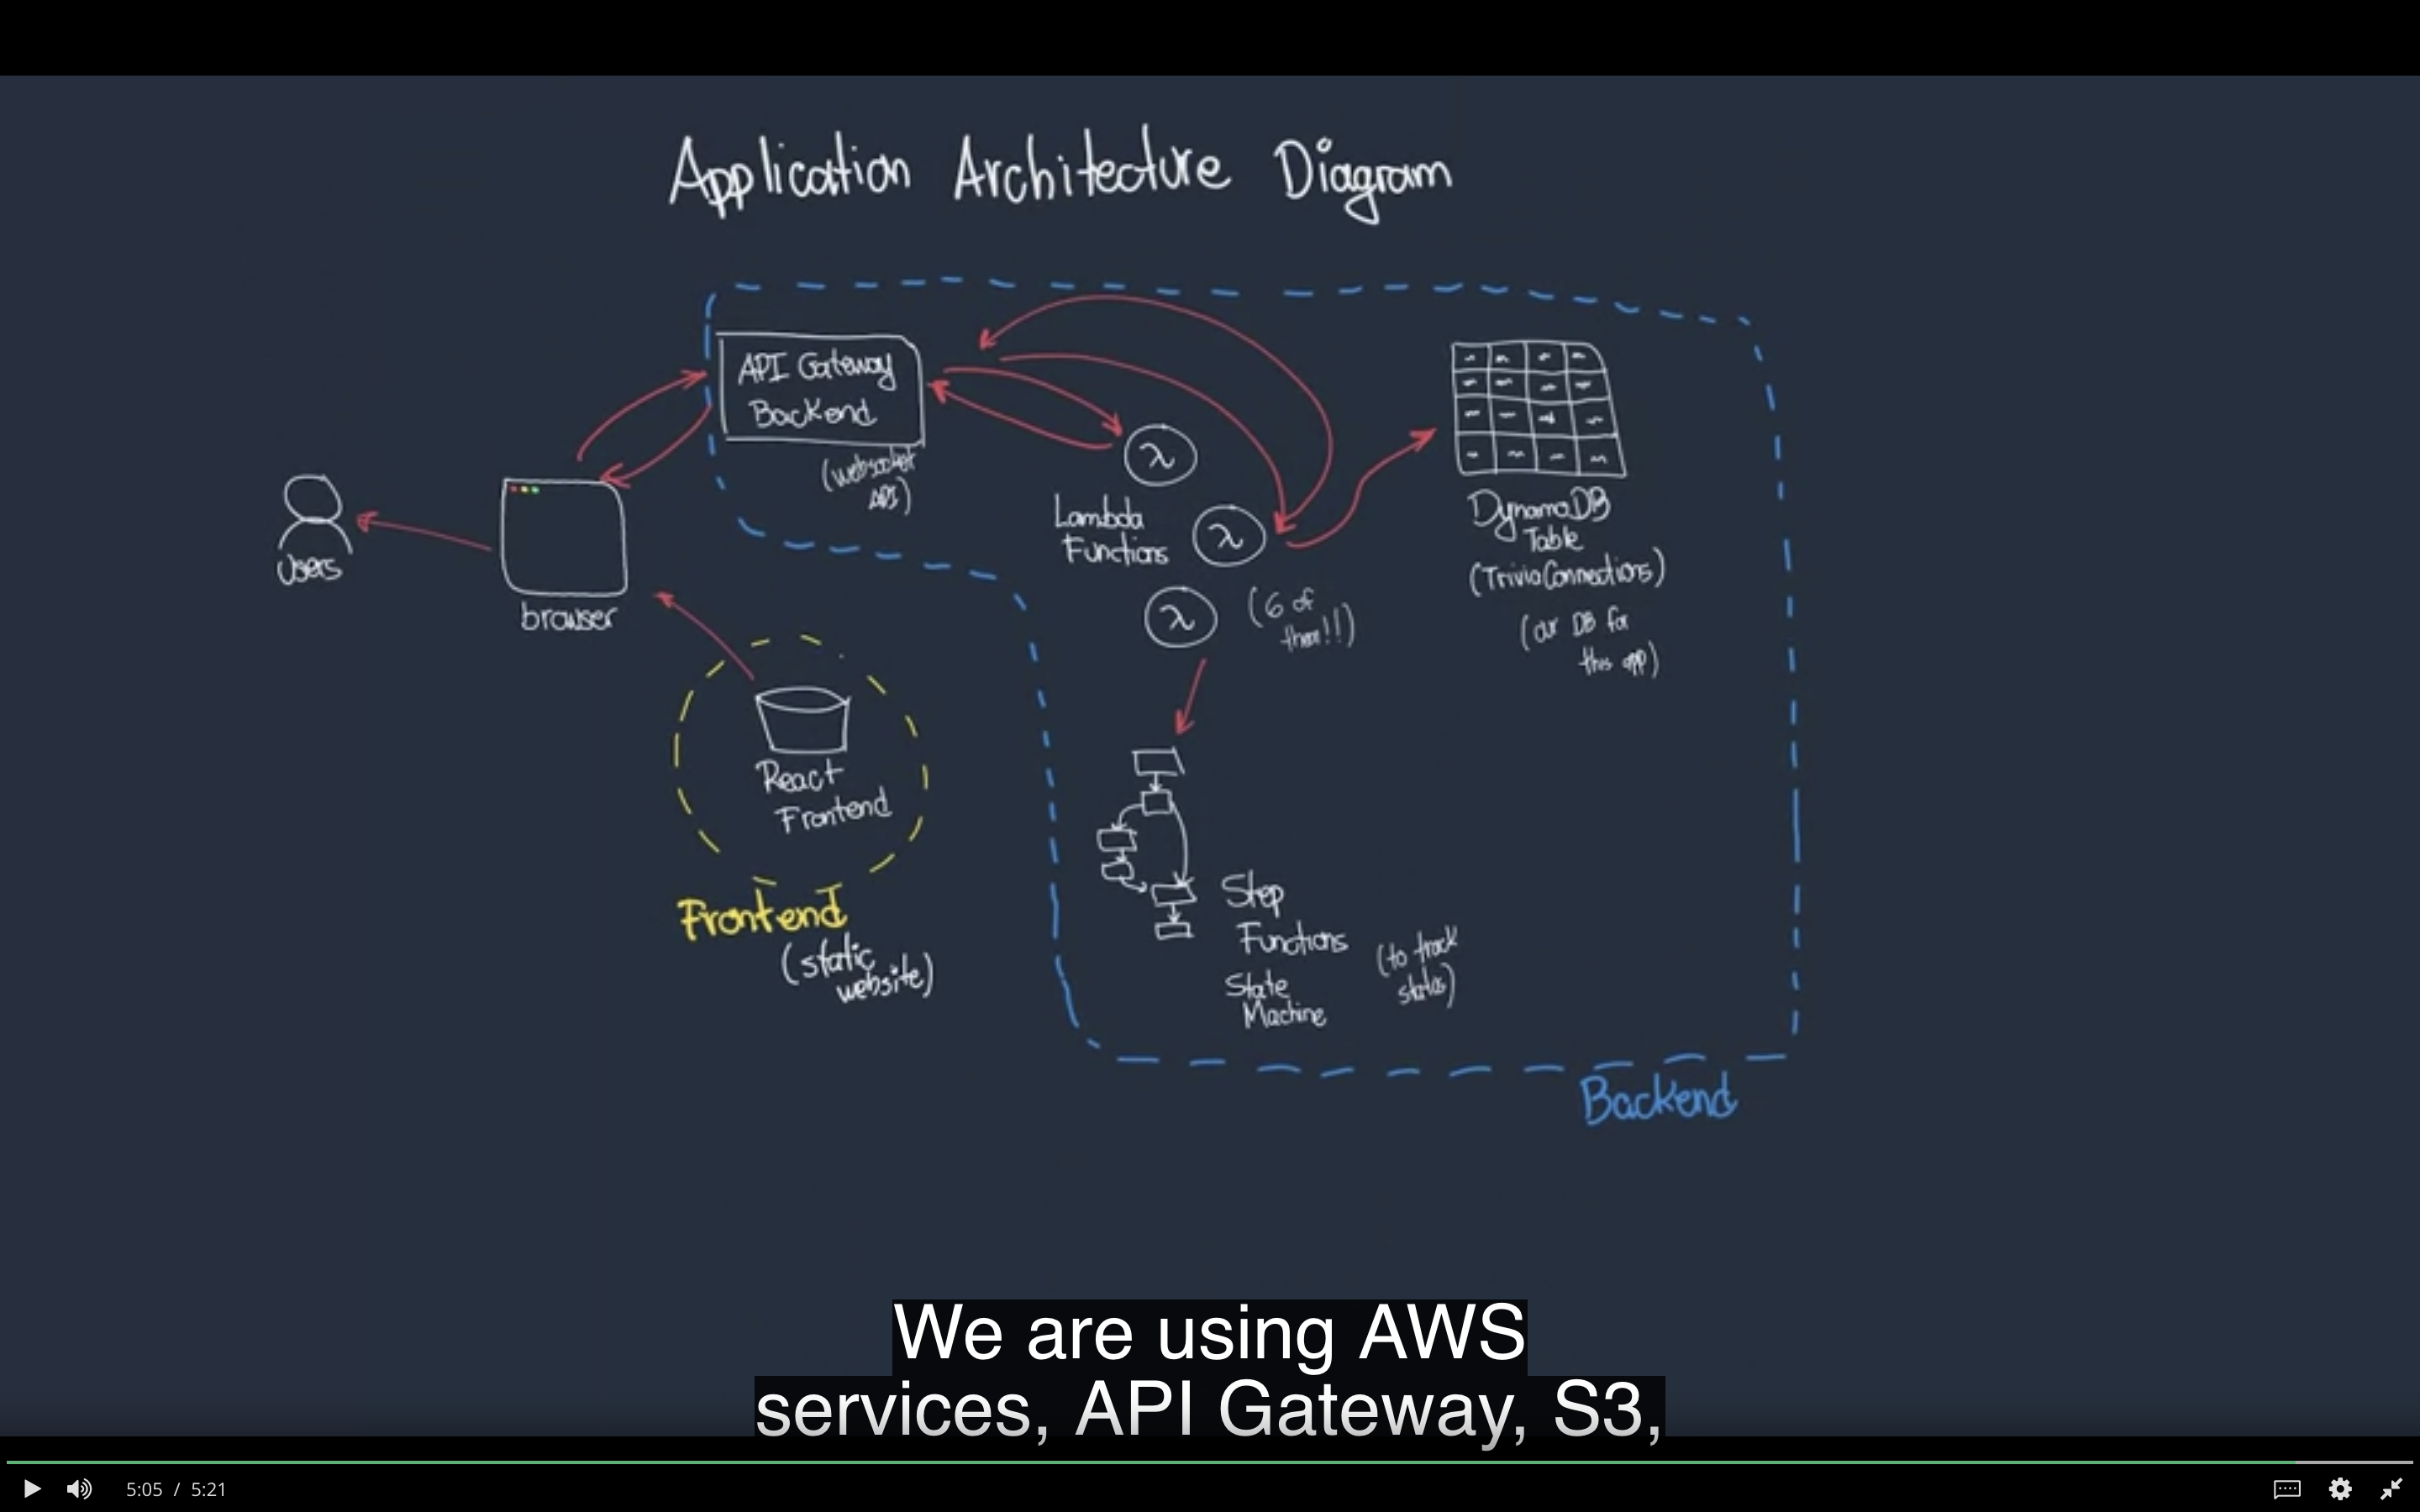 Application Architecture Diagram
API Gateway
Backend
(websocket
API)
Users
browser
Lambda
Functions
λ
λ
λ
(6 of
them!!)
DynamoDB
Table
(TriviaConnections)
(our DB for
this app)
React
Frontend
Frontend
(static
website)
Step
Functions
State
Machine
(to track
status)
Backend
We are using AWS
services, API Gateway, S3,
5:05 / 5:21